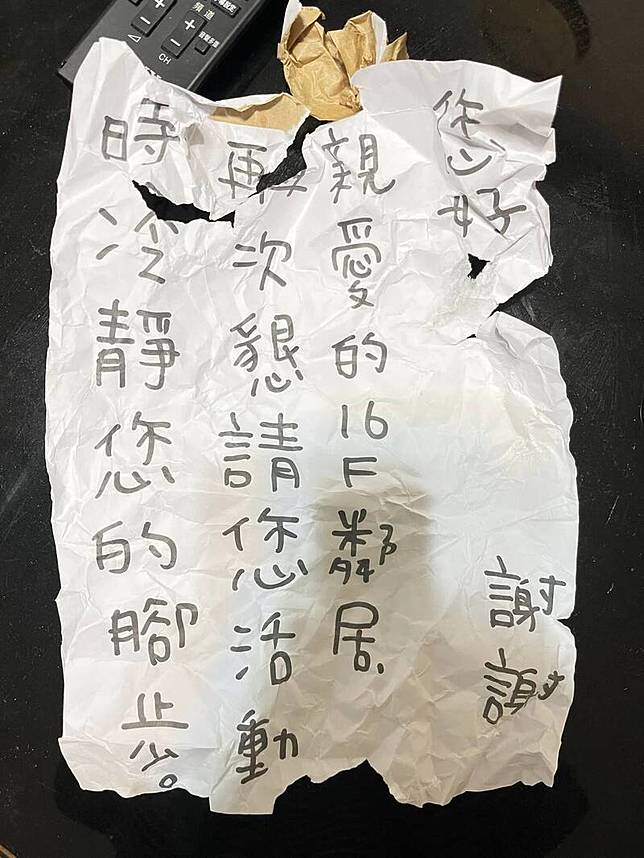 您好
親愛的16F鄰居
再次懇請您活動
時冷靜您的腳步。
謝謝
頻道
+
−
+
−
CH